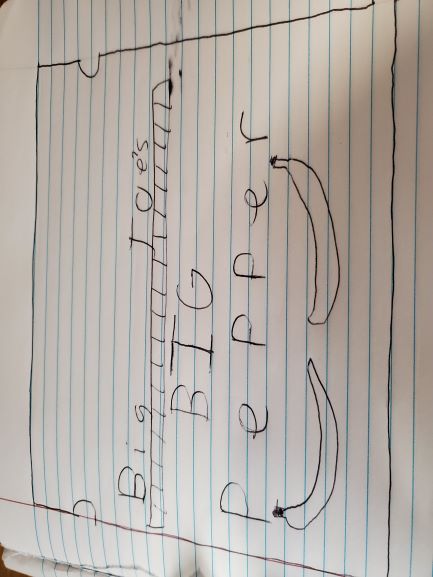 Big Joe's
BIG
Pepper